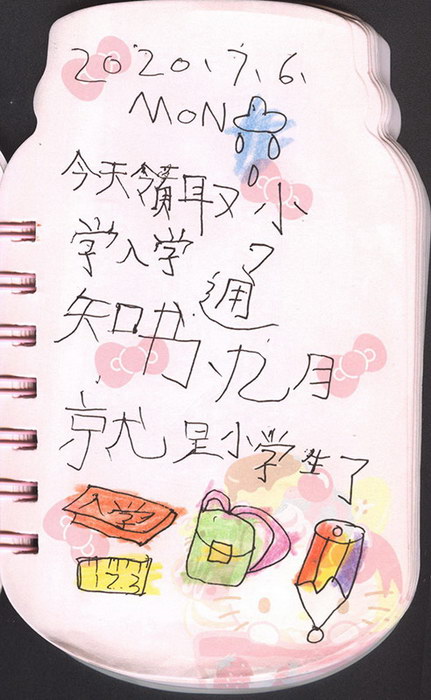 2020、7、6、
MON
今天領取小
学入学通
知书，九月
就是小学生了
入学
1 2 3